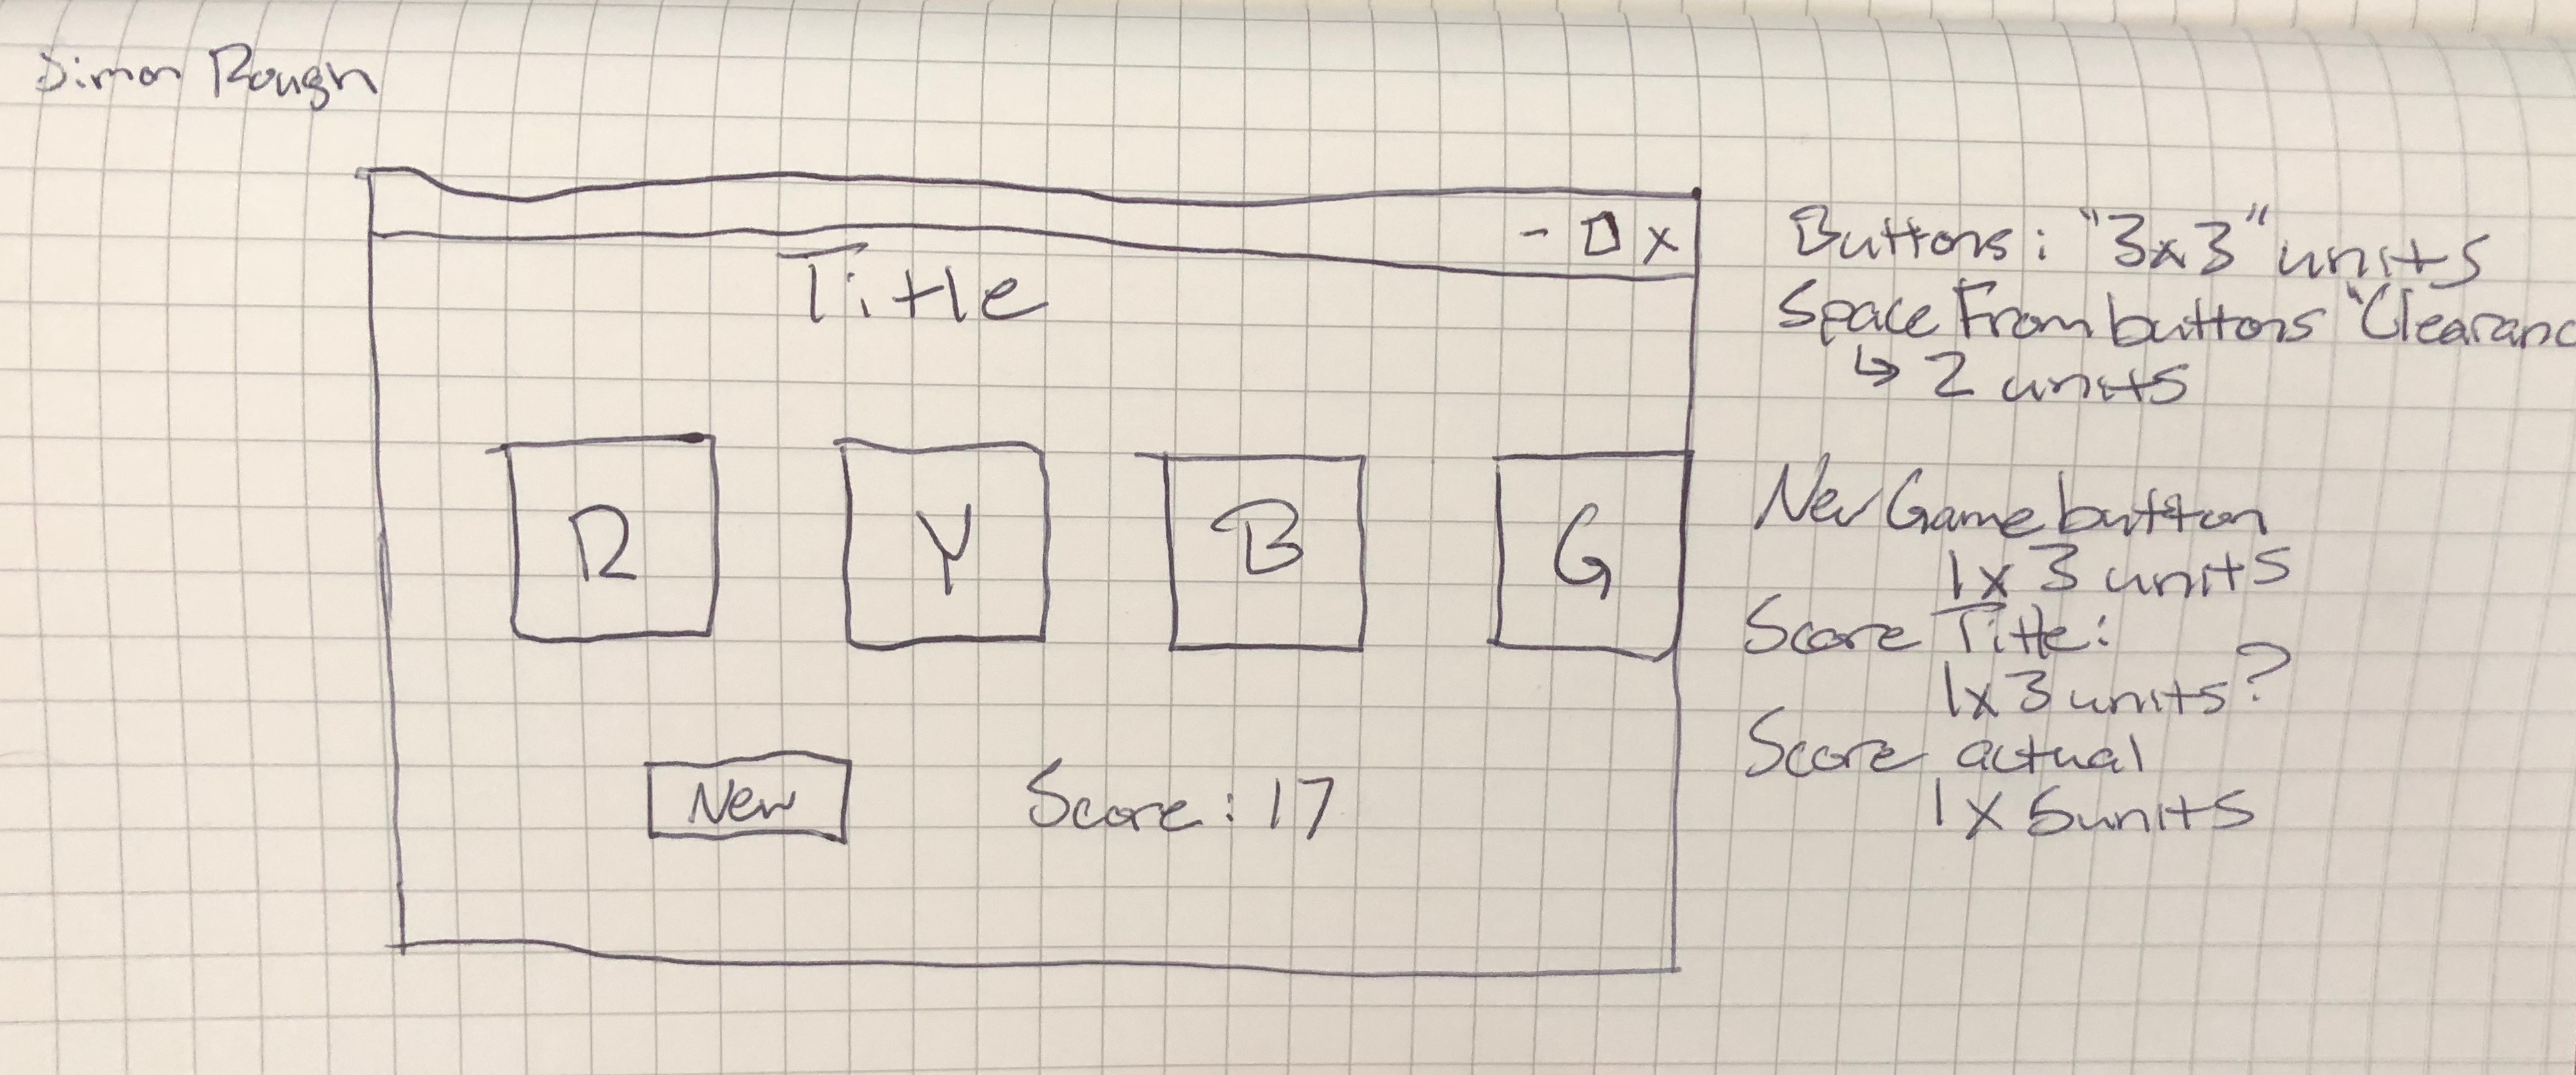 Simon Rough
- □ x
Title
R Y B G
New Score: 17
Buttons: "3x3" units
Space From buttons "Clearanc
↳ 2 units
New Game button
1x3 units
Score Title:
1x3 units?
Score actual
1x5units